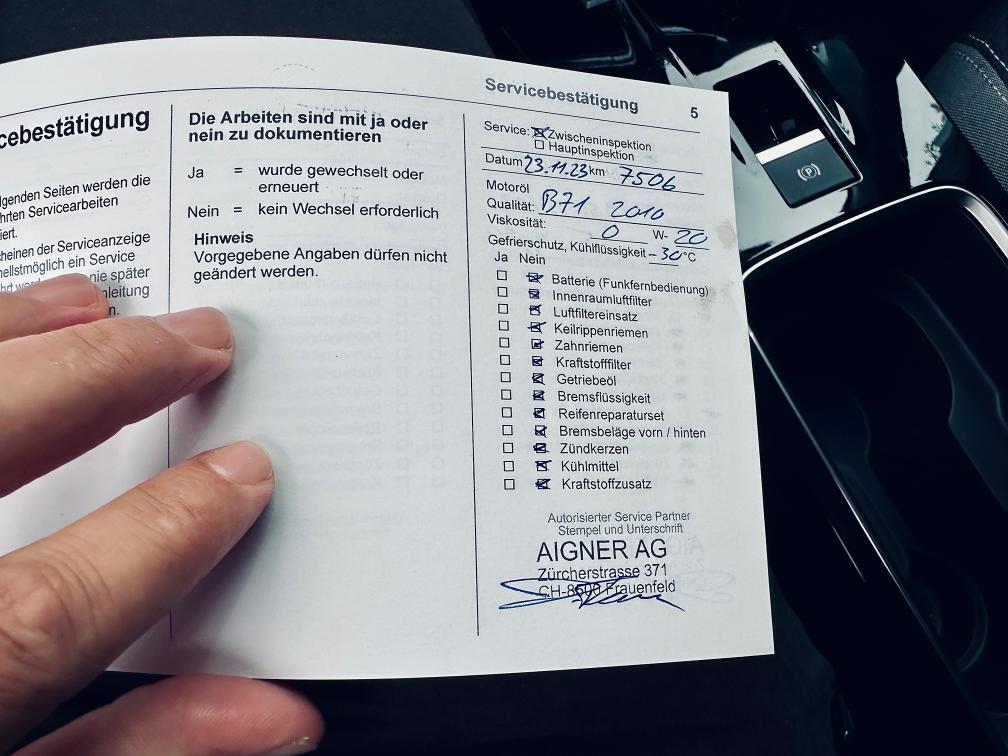 Servicebestätigung 5
cebestätigung
lgenden Seiten werden die
hrten Servicearbeiten
iert.
cheinen der Serviceanzeige
nellstmöglich ein Service
nie später
nleitung
n.
Die Arbeiten sind mit ja oder
nein zu dokumentieren
Ja = wurde gewechselt oder
erneuert
Nein = kein Wechsel erforderlich
Hinweis
Vorgegebene Angaben dürfen nicht
geändert werden.
Service: Zwischeninspektion
Hauptinspektion
Datum 23.11.23 km 7506
Motoröl
Qualität: B71 2010
Viskosität: 0 W- 20
Gefrierschutz, Kühlflüssigkeit -30°C
Ja Nein
Batterie (Funkfernbedienung)
Innenraumluftfilter
Luftfiltereinsatz
Keilrippenriemen
Zahnriemen
Kraftstofffilter
Getriebeöl
Bremsflüssigkeit
Reifenreparaturset
Bremsbeläge vorn / hinten
Zündkerzen
Kühlmittel
Kraftstoffzusatz
Autorisierter Service Partner
Stempel und Unterschrift
AIGNER AG
Zürcherstrasse 371
CH-8500 Frauenfeld